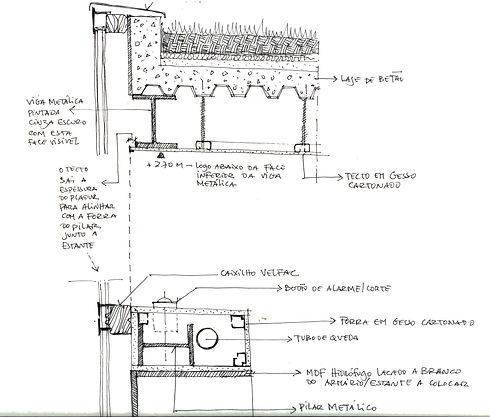 LAJE DE BETÃO
VIGA METÁLICA
PINTADA
CINZA ESCURO
COM ESTA
FACE VISÍVEL
+2.70 M — LOGO ABAIXO DA FACE
INFERIOR DA VIGA
METÁLICA
TECTO EM GESSO
CARTONADO
O TECTO
SAI A
ESPESSURA
DO PLADUR
PARA ALINHAR
COM A FORRA
DO PILAR,
JUNTO A
ESTANTE
CAIXILHO VELFAC
BOTÃO DE ALARME/CORTE
FORRA EM GESSO CARTONADO
TUBO DE QUEDA
MDF HIDRÓFUGO LACADO A BRANCO
DO ARMÁRIO/ESTANTE A COLOCAR
PILAR METÁLICO